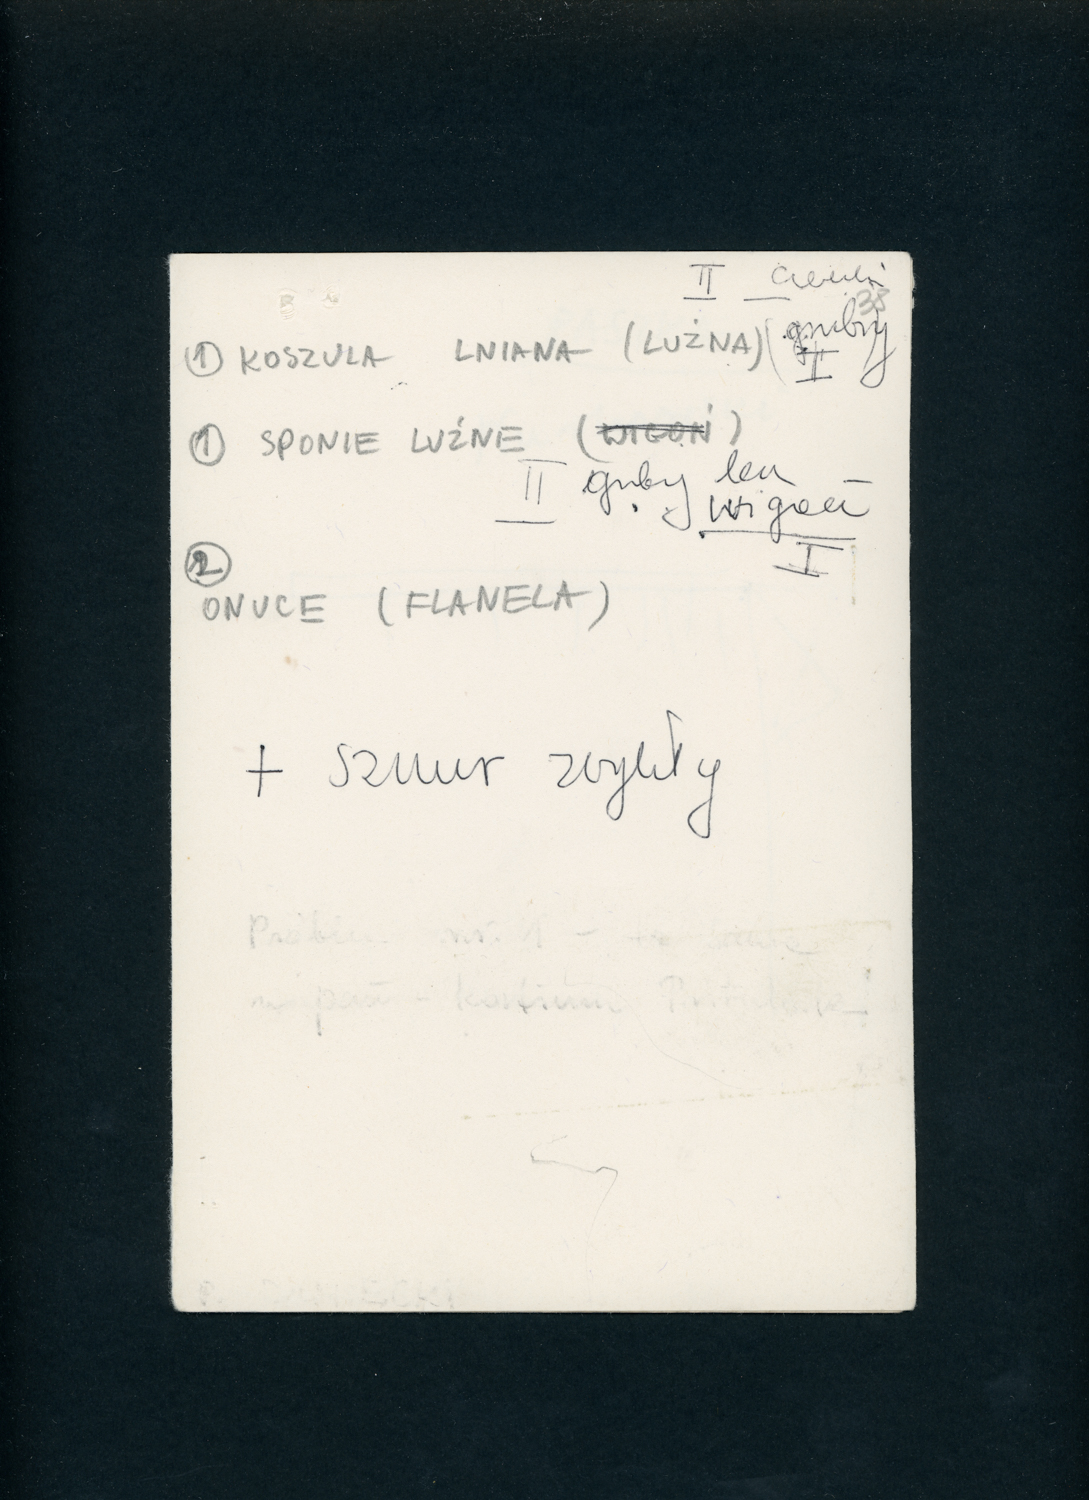 II cienki
38
① KOSZULA LNIANA (LUŹNA) (gruby
I
① SPODNIE LUŹNE (WIGOŃ)
II gruby len
wigoń
I
②
ONUCE (FLANELA)
+ sznur zwykły